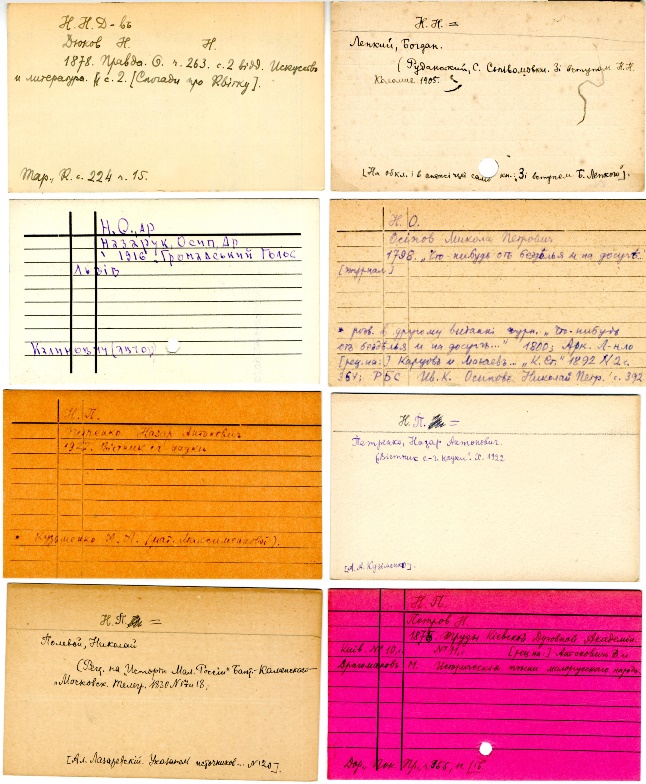 Н. Н. Д-въ
Дюков Н. Н.
1878. Правда. О. ч. 263. с. 2 відд. Искусство
и литература. с. 2. [Спогади про Квітку].
Мар., К. с. 224 ч. 15.
Н. Н. =
Лепкий, Богдан.
(Руданський, С. Співомовки. Зі вступом Н. Н.
Коломия 1905.
[На обкл. і в анонсі цієї само кн.: "Зі вступом Б. Лепкого"].
Н. О., др
Назарук, Осип, Др
1916. Громадський Голос
Львів
Калинович (автог)
Н. О.
Осипов Микола Петрович
1798. "Что-нибудь отъ бездѣлья и на досугѣ.
[журнал]
* розв. в другому виданні журн. "Что-нибудь
отъ бездѣлья и на досугѣ..." 1800; Арк. Л-нло
[рец. на:] Карцовъ и Мозаевъ... "К. Ст." 1892 N 2 с.
361; РБС Ив. К. Осиповъ. Николай Петр. с. 392
Н. П.
Петренко Назар Антонович
Вістник с.г. науки
* Кузьменко
Н. П. =
Петренко, Назар Антонович.
"Вістник с.-г. науки". X. 1922
[А. А. Кузьменко].
Н. П. =
Полевой, Николай
(Рец. на Исторію Мал. Россіи Бант.-Каменского-
"Московск. Телегр. 1830 N 17 и 18;
[Ал. Лазаревскій. Указатель источников... N 120].
Н. П.
Петров Н.
1875. Труды Кіевской Духовной Академіи
Київ. № 10, № 11, [рец. на:] Антонович В. и
Драгоманов М. Историческія пѣсни малорусского народа.